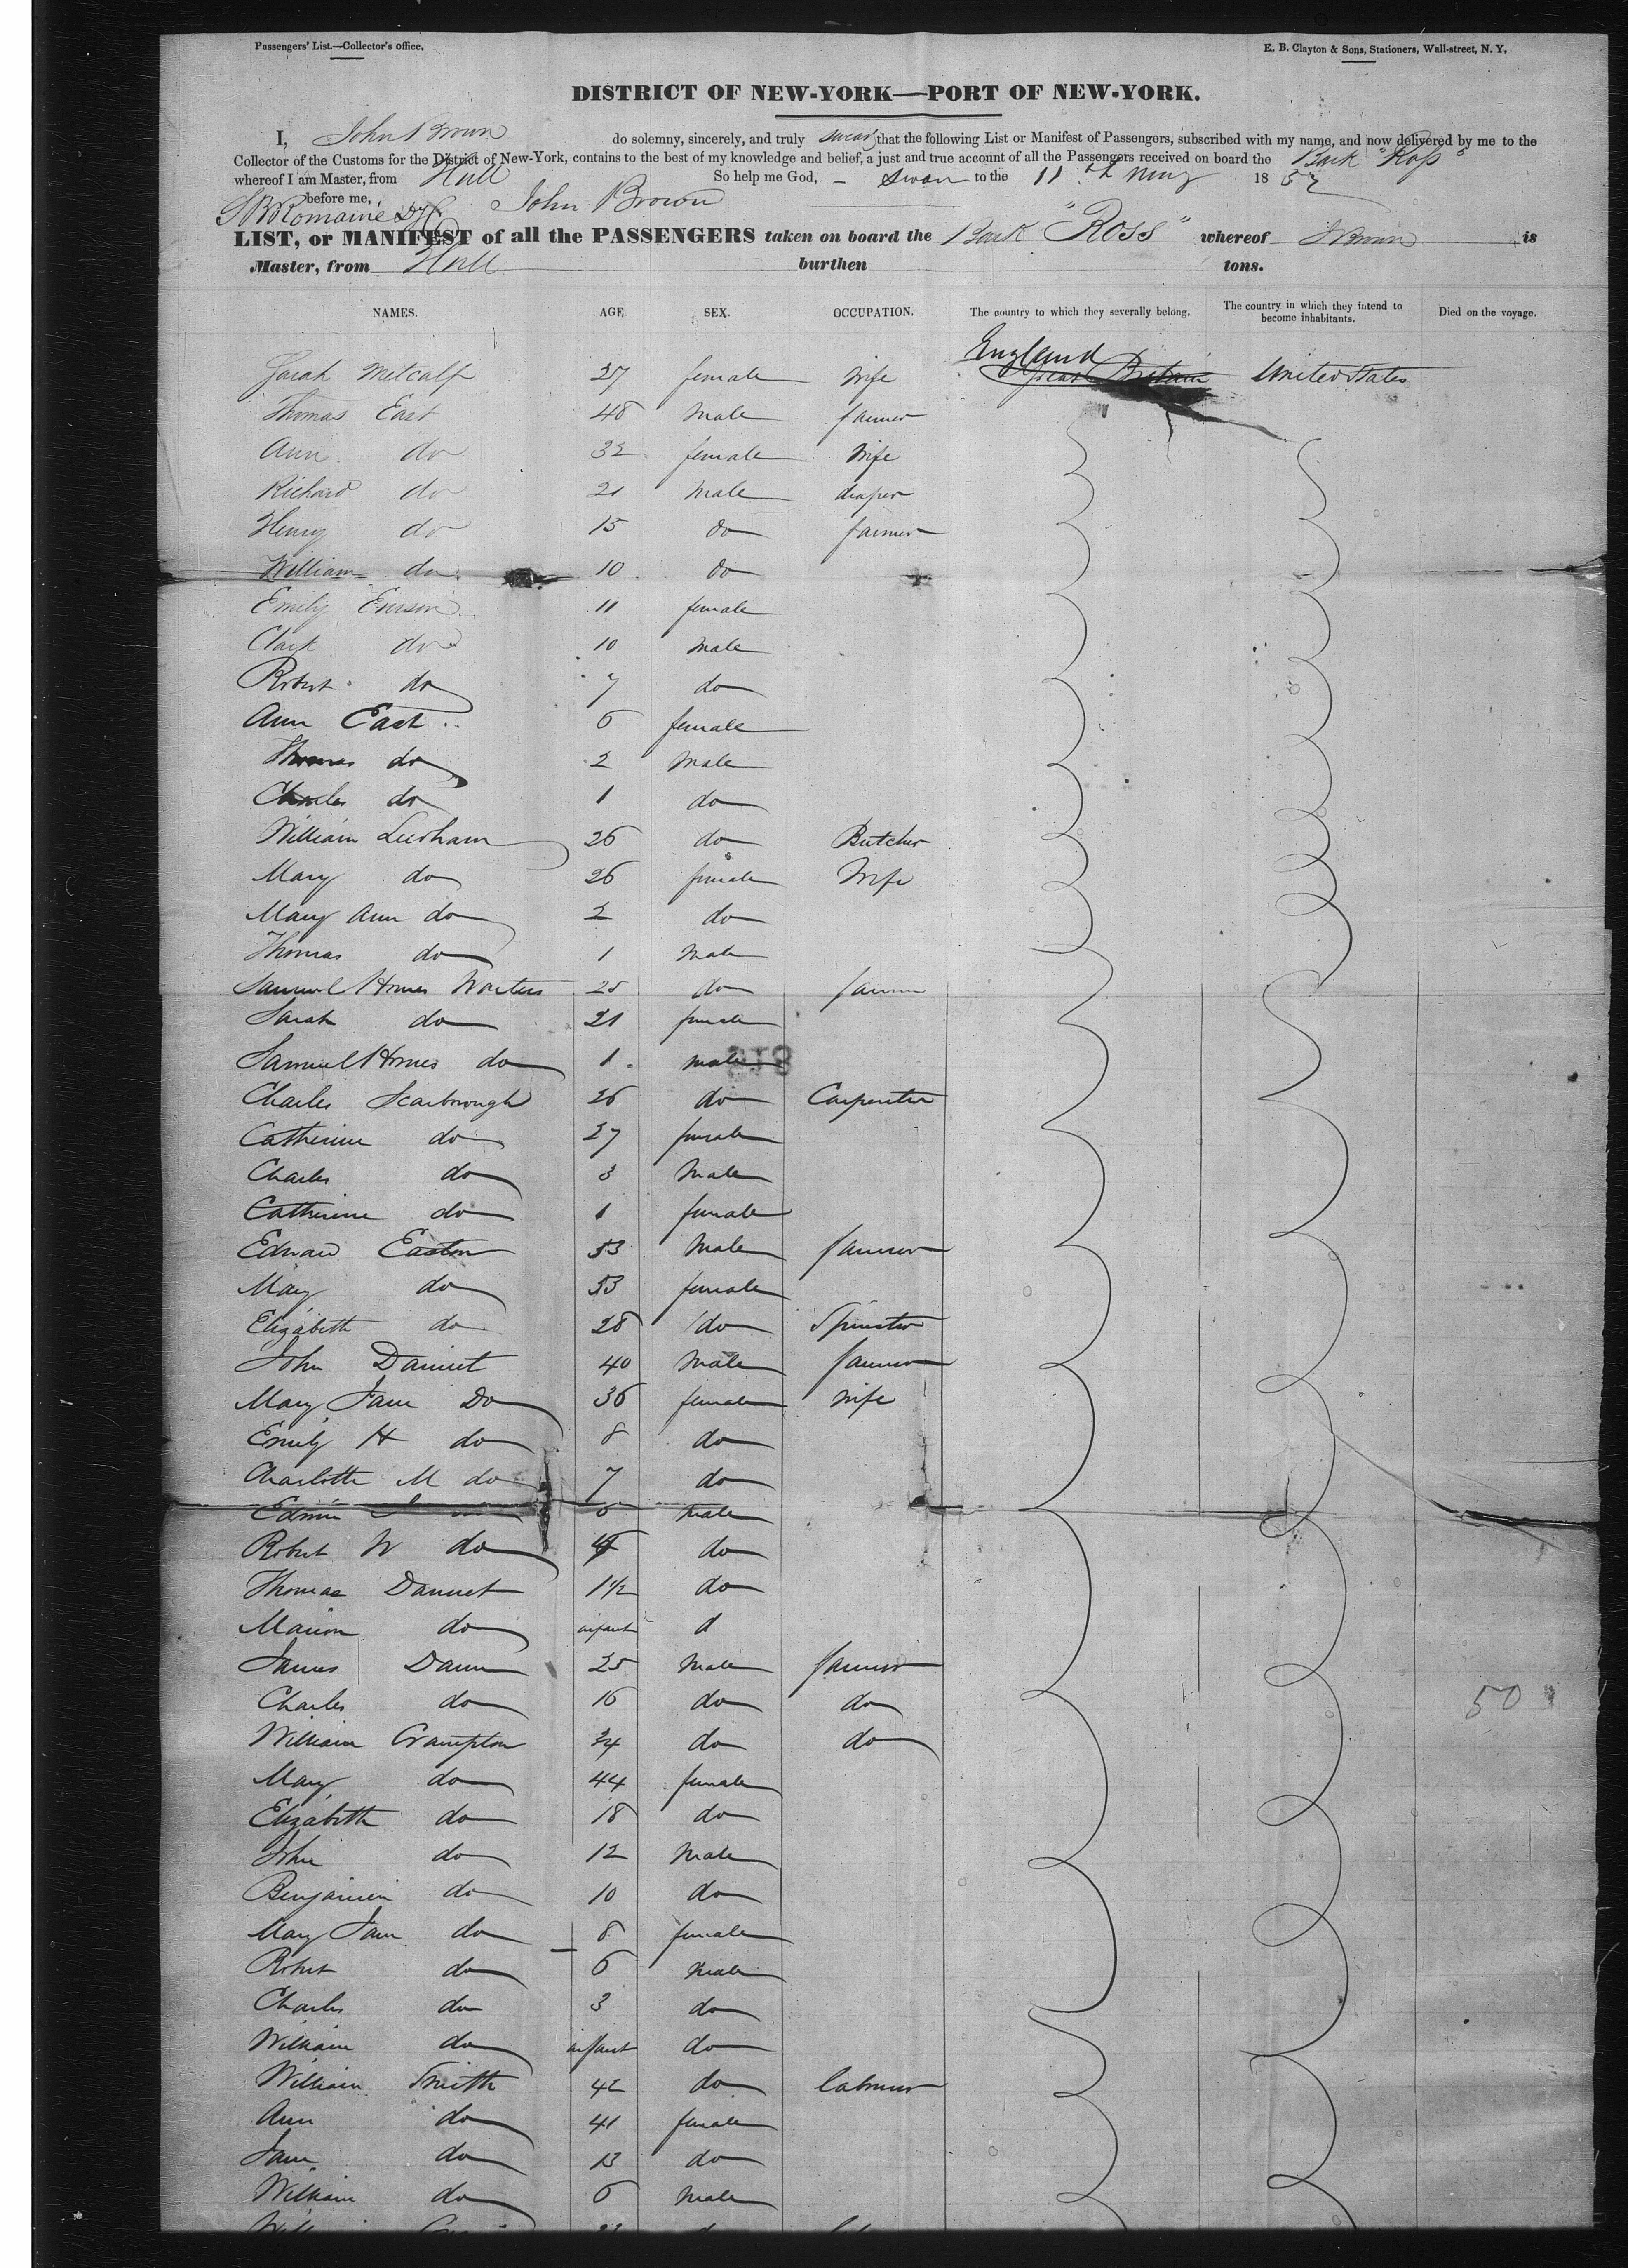 Passengers' List.—Collector's office.
E. B. Clayton & Sons, Stationers, Wall-street, N. Y.
DISTRICT OF NEW-YORK—PORT OF NEW-YORK.
I, John Brown do solemny, sincerely, and truly swear that the following List or Manifest of Passengers, subscribed with my name, and now delivered by me to the
Collector of the Customs for the District of New-York, contains to the best of my knowledge and belief, a just and true account of all the Passengers received on board the Bark "Ross"
whereof I am Master, from Hull So help me God, - Sworn to the 11th 185
before me, John Brown
LIST, or MANIFEST of all the PASSENGERS taken on board the Bark "Ross" whereof J Brown is
Master, from Hull burthen tons.
NAMES. AGE. SEX. OCCUPATION. The country to which they severally belong. The country in which they intend to become inhabitants. Died on the voyage.
England
Sarah Metcalf 27 female Wife Great Britain United States
Thomas East 48 Male farmer
Ann do 32 female Wife
Richard do 21 Male draper
Henry do 15 do farmer
William do 10 do
Emily 11 female
Clark do 10 Male
Robert do 7 do
Ann East 6 female
Thomas do 2 Male
Charles do 1 do
William 26 do Butcher
Mary do 26 female Wife
Mary Ann do 2 do
Thomas do 1 Male
Samuel 25 do farmer
Sarah do 21 female
Samuel do 1 male
Charles Scarborough 26 do Carpenter
Catherine do 27 female
Charles do 3 Male
Catherine do 1 female
Edward Easton 53 Male farmer
Mary do 53 female
Elizabeth do 28 do Spinster
John 40 Male farmer
Mary Jane Do 36 female wife
Emily H do 8 do
Charlotte M do 7 do
Edwin 6 Male
Robert W do 4 do
Thomas 1 1/2 do
Marion do infant d
James 25 Male farmer
Charles do 16 do do
William Crampton 34 do do
Mary do 44 female
Elizabeth do 18 do
John do 12 Male
Benjamin do 10 do
Mary Jane do 8 female
Robert do 6 Male
Charles do 3 do
William do infant do
William Smith 42 do labourer
Ann do 41 female
Jane do 13 do
William do 6 Male
50